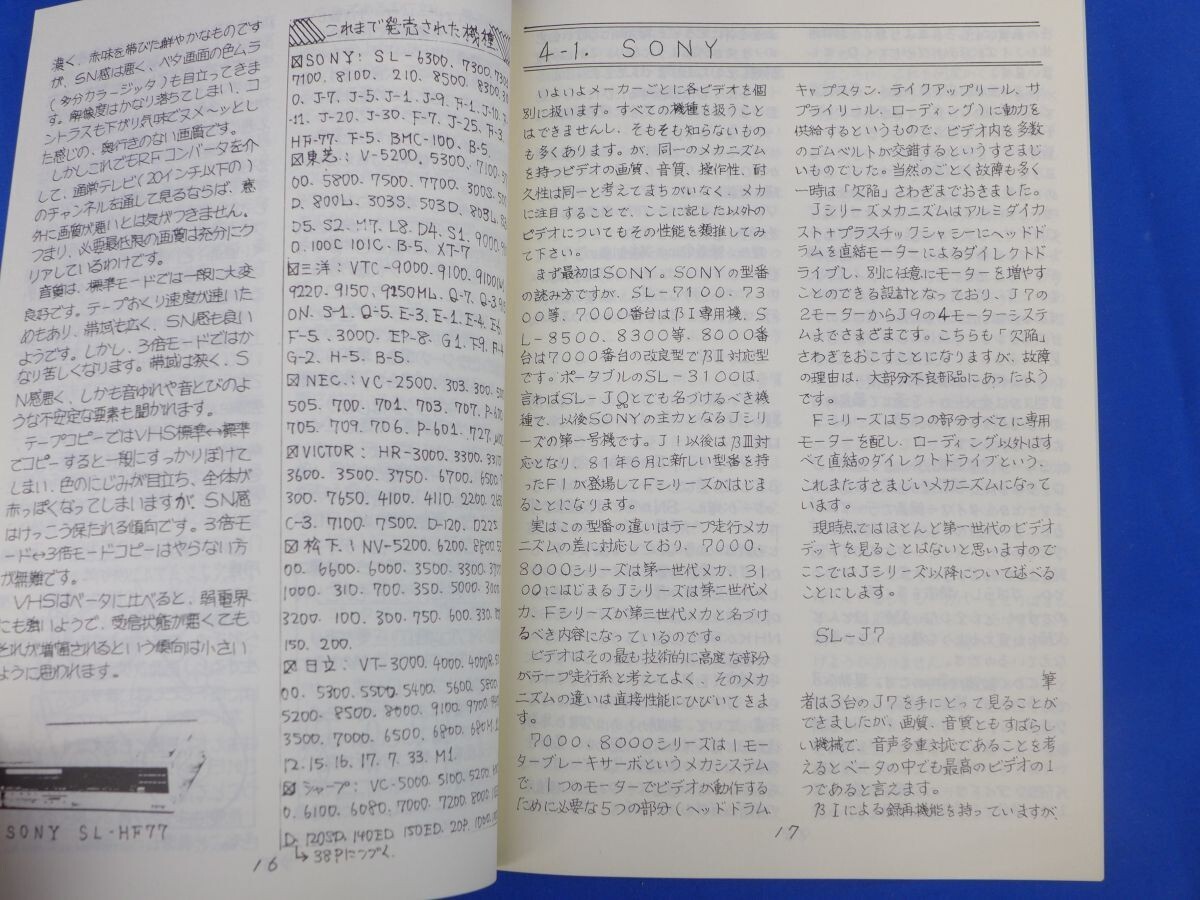 濃く、赤味を帯びた鮮やかなものです
が、SN感は悪く、ベタ画面の色ムラ
(多分カラージッタ)も目立ってきま
す。解像度はかなり落ちてしまい、コ
ントラスも下がり気味でヌメ〜ッとし
た感じの、奥行きのない画質です。
しかしこれでもRFコンバータを介
して、通常テレビ(20インチ以下の)
のチャンネルを通して見るならば、意
外に画質が悪いとは気がつきません。
つまり、必要最低限の画質は充分にク
リアしているわけです。
音質は、標準モードでは一般に大変
良好です。テープおくり速度が速いた
めもあり、帯域も広く、SN感も良い
ようです。しかし、3倍モードではか
なり苦しくなります。帯域は狭く、S
N感悪く、しかも音ゆれや音とびのよ
うな不安定な要素も聞かれます。
テープコピーではVHS標準↔標準
でコピーすると一般にすっかりぼけて
しまい、色のにじみが目立ち、全体が
赤っぽくなってしまいますが、SN感
はけっこう保たれる傾向です。3倍モ
ード↔3倍モードコピーはやらない方
が無難です。
VHSはベータに比べると、弱電界
にも強いようで、受信状態が悪くても
それが増幅されるという傾向は小さい
ように思われます。
SONY SL-HF77
16
これまで発売された機種
SONY: SL-6300. 7300. 7305
7100. 8100. 210. 8500. 8300.
0. J-7. J-5. J-1. J-9. F-1. J-10.
-11. J-20. J-30. F-7. J-25. F-3
HF-77. F-5. BMC-100. B-5.
東芝: V-5200. 5300. 7100.
00. 5800. 7500. 7700. 300S. 500
D. 800L. 303S. 503D. 803L.
D5. S2. M7. L8. D4. S1. 9000.
0. 100C 101C. B-5. XT-7
三洋: VTC-9000. 9100. 9100
9220. 9150. 9250ML. Q-7. Q-3
ON. S-1. Q-5. E-3. E-1. E-4. E-6
F-5. 3000. EP-8. G1. F9. F-4
G-2. H-5. B-5.
NEC.: VC-2500. 303. 300. 50
505. 700. 701. 703. 707. P-600
705. 709. 706. P-601. 727.
VICTOR: HR-3000. 3300. 3310
3600. 3500. 3750. 6700. 6500.
300. 7650. 4100. 4110. 2200. 2650
C-3. 7100. 7500. D-120. D225
松下.: NV-5200. 6200. 8800.
00. 6600. 6000. 3500. 3300.
1000. 310. 700. 350. 5000. 5500
3200. 100. 300. 750. 600. 330.
150. 200.
日立: VT-3000. 4000. 4000R.
00. 5300. 5500. 5400. 5600. 5800.
5200. 8500. 8000. 9100. 9700.
3500. 7000. 6500. 6800. 680M.
12. 15. 16. 17. 7. 33. M1.
シャープ: VC-5000. 5100. 5200.
0. 6100. 6080. 7000. 7200. 8000.
D. 120SD. 140ED. 150ED. 20P. 1000.
↳38Pにつづく.
4-1. SONY
いよいよメーカーごとに各ビデオを個
別に扱います。すべての機種を扱うこと
はできませんし、そもそも知らないもの
も多くあります。が、同一のメカニズム
を持つビデオの画質、音質、操作性、耐
久性は同一と考えてまちがいなく、メカ
に注目することで、ここに記した以外の
ビデオについてもその性能を類推してみ
て下さい。
まず最初はSONY。SONYの型番
の読み方ですが、SL-7100、73
00等、7000番台はβI専用機、S
L-8500、8300等、8000番
台は7000番台の改良型でβII対応型
です。ポータブルのSL-3100は、
言わばSL-J0とでも名づけるべき機
種で、以後SONYの主力となるJシリ
ーズの第一号機です。J1以後はβIII対
応となり、81年6月に新しい型番を持
ったF1が登場してFシリーズがはじま
ることになります。
実はこの型番の違いはテープ走行メカ
ニズムの差に対応しており、7000、
8000シリーズは第一世代メカ、31
00にはじまるJシリーズは第二世代メ
カ、Fシリーズが第三世代メカと名づけ
るべき内容になっているのです。
ビデオはその最も技術的に高度な部分
がテープ走行系と考えてよく、そのメカ
ニズムの違いは直接性能にひびいてきま
す。
7000、8000シリーズは1モー
ターブレーキサーボというメカシステム
で、1つのモーターでビデオが動作する
ために必要な5つの部分(ヘッドドラム
キャプスタン、テイクアップリール、サ
プライリール、ローディング)に動力を
供給するというもので、ビデオ内を多数
のゴムベルトが交錯するというすさまじ
いものでした。当然のごとく故障も多く
一時は「欠陥」さわぎまでおきました。
Jシリーズメカニズムはアルミダイカ
スト+プラスチックシャシーにヘッドド
ラムを直結モーターによるダイレクトド
ライブし、別に任意にモーターを増やす
ことのできる設計となっており、J7の
2モーターからJ9の4モーターシステ
ムまでさまざまです。こちらも「欠陥」
さわぎをおこすことになりますが、故障
の理由は、大部分不良部品にあったよう
です。
Fシリーズは5つの部分すべてに専用
モーターを配し、ローディング以外はす
べて直結のダイレクトドライブという、
これまたすさまじいメカニズムになって
います。
現時点ではほとんど第一世代のビデオ
デッキを見ることはないと思いますので
ここではJシリーズ以降について述べる
ことにします。
SL-J7
筆
者は3台のJ7を手にとって見ることが
できましたが、画質、音質ともすばらし
い機械で、音声多重対応であることを考
えるとベータの中でも最高のビデオの1
つであると言えます。
βIによる録再機能を持っていますが、
17